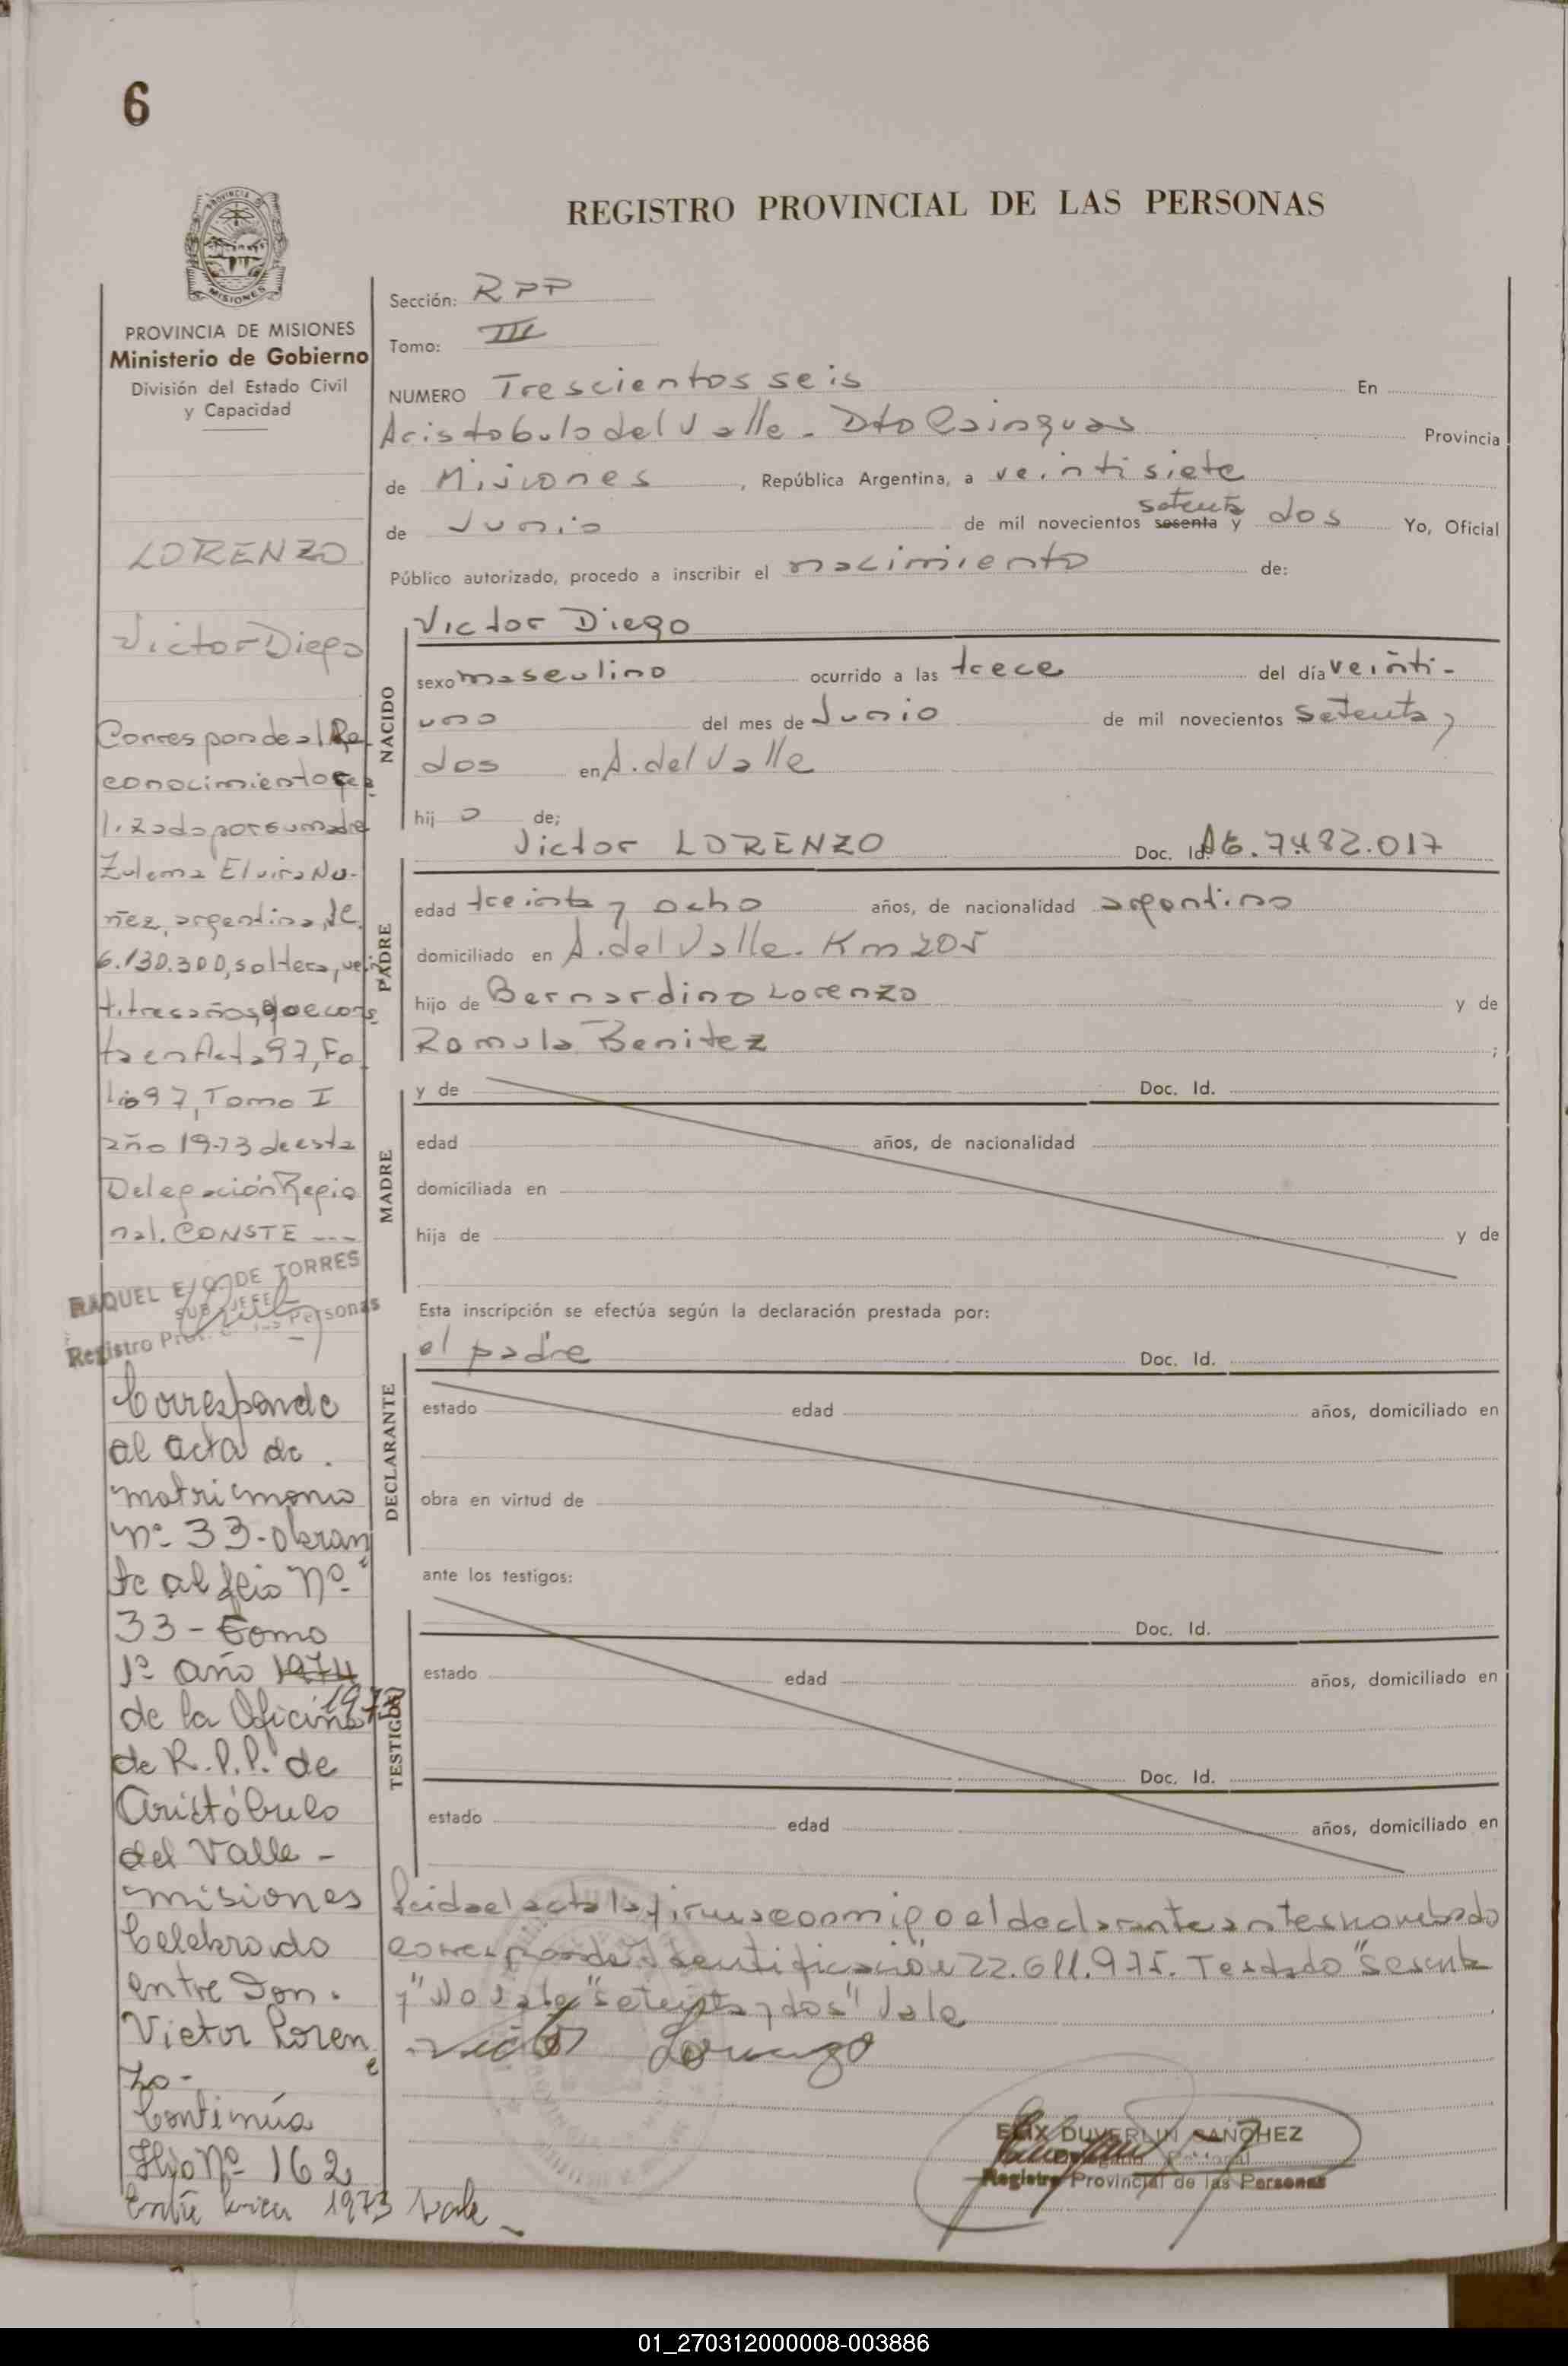 6
REGISTRO PROVINCIAL DE LAS PERSONAS
PROVINCIA DE MISIONES
MISIONES
PROVINCIA DE MISIONES
Ministerio de Gobierno
División del Estado Civil
y Capacidad
LORENZO
Victor Diego
Corresponde al Re
conocimiento rea
lizado por su madre
Zulema Elvira Nu-
ñez, argentina,
6.130.300, soltera, vein
titres años, que cons
ta en Acta 97, Fo
lio 97, Tomo I
año 1973 de esta
Delegación Regio
nal. CONSTE ---
RAQUEL E. DE TORRES
SUB JEFE
Registro Prov. de las Personas
Corresponde
al acta de
matrimonio
nº 33-obran
te al flio Nº
33 - Tomo
1º año 1974
1973
de la Oficina
de R.P.P. de
Aristóbulo
del Valle -
misiones
Celebrado
entre Don.
Victor Loren
zo -
Continúa
Flio Nº 162
Entre linea 1973 Vale
Sección: RPP
Tomo: III
NUMERO Trescientos seis En
Aristobulo del Valle - Dto Cainguas Provincia
de Misiones , República Argentina, a veintisiete
setenta
de Junio de mil novecientos sesenta y dos Yo, Oficial
Público autorizado, procedo a inscribir el nacimiento de:
NACIDO
Victor Diego
sexo masculino ocurrido a las trece del día veinti-
uno del mes de Junio de mil novecientos setenta y
dos en A. del Valle
hij o de;
PADRE
Victor LORENZO Doc. Id. 7.482.017
edad treinta y ocho años, de nacionalidad argentino
domiciliado en A. del Valle - Km 205
hijo de Bernardino Lorenzo y de
Romula Benitez ;
MADRE
y de Doc. Id.
edad años, de nacionalidad
domiciliada en
hija de y de
Esta inscripción se efectúa según la declaración prestada por:
DECLARANTE
el padre Doc. Id.
estado edad años, domiciliado en
obra en virtud de
ante los testigos:
TESTIGOS
Doc. Id.
estado edad años, domiciliado en
Doc. Id.
estado edad años, domiciliado en
Leida el acta la firma conmigo el declarante antes nombrado
corresponde Identificación 22.611.975. Testado "sesenta
y" No vale "setenta y dos" Vale
Victor Lorenzo
ELIX DUVERLIN SANCHEZ
Registro Provincial de las Personas
01_270312000008-003886